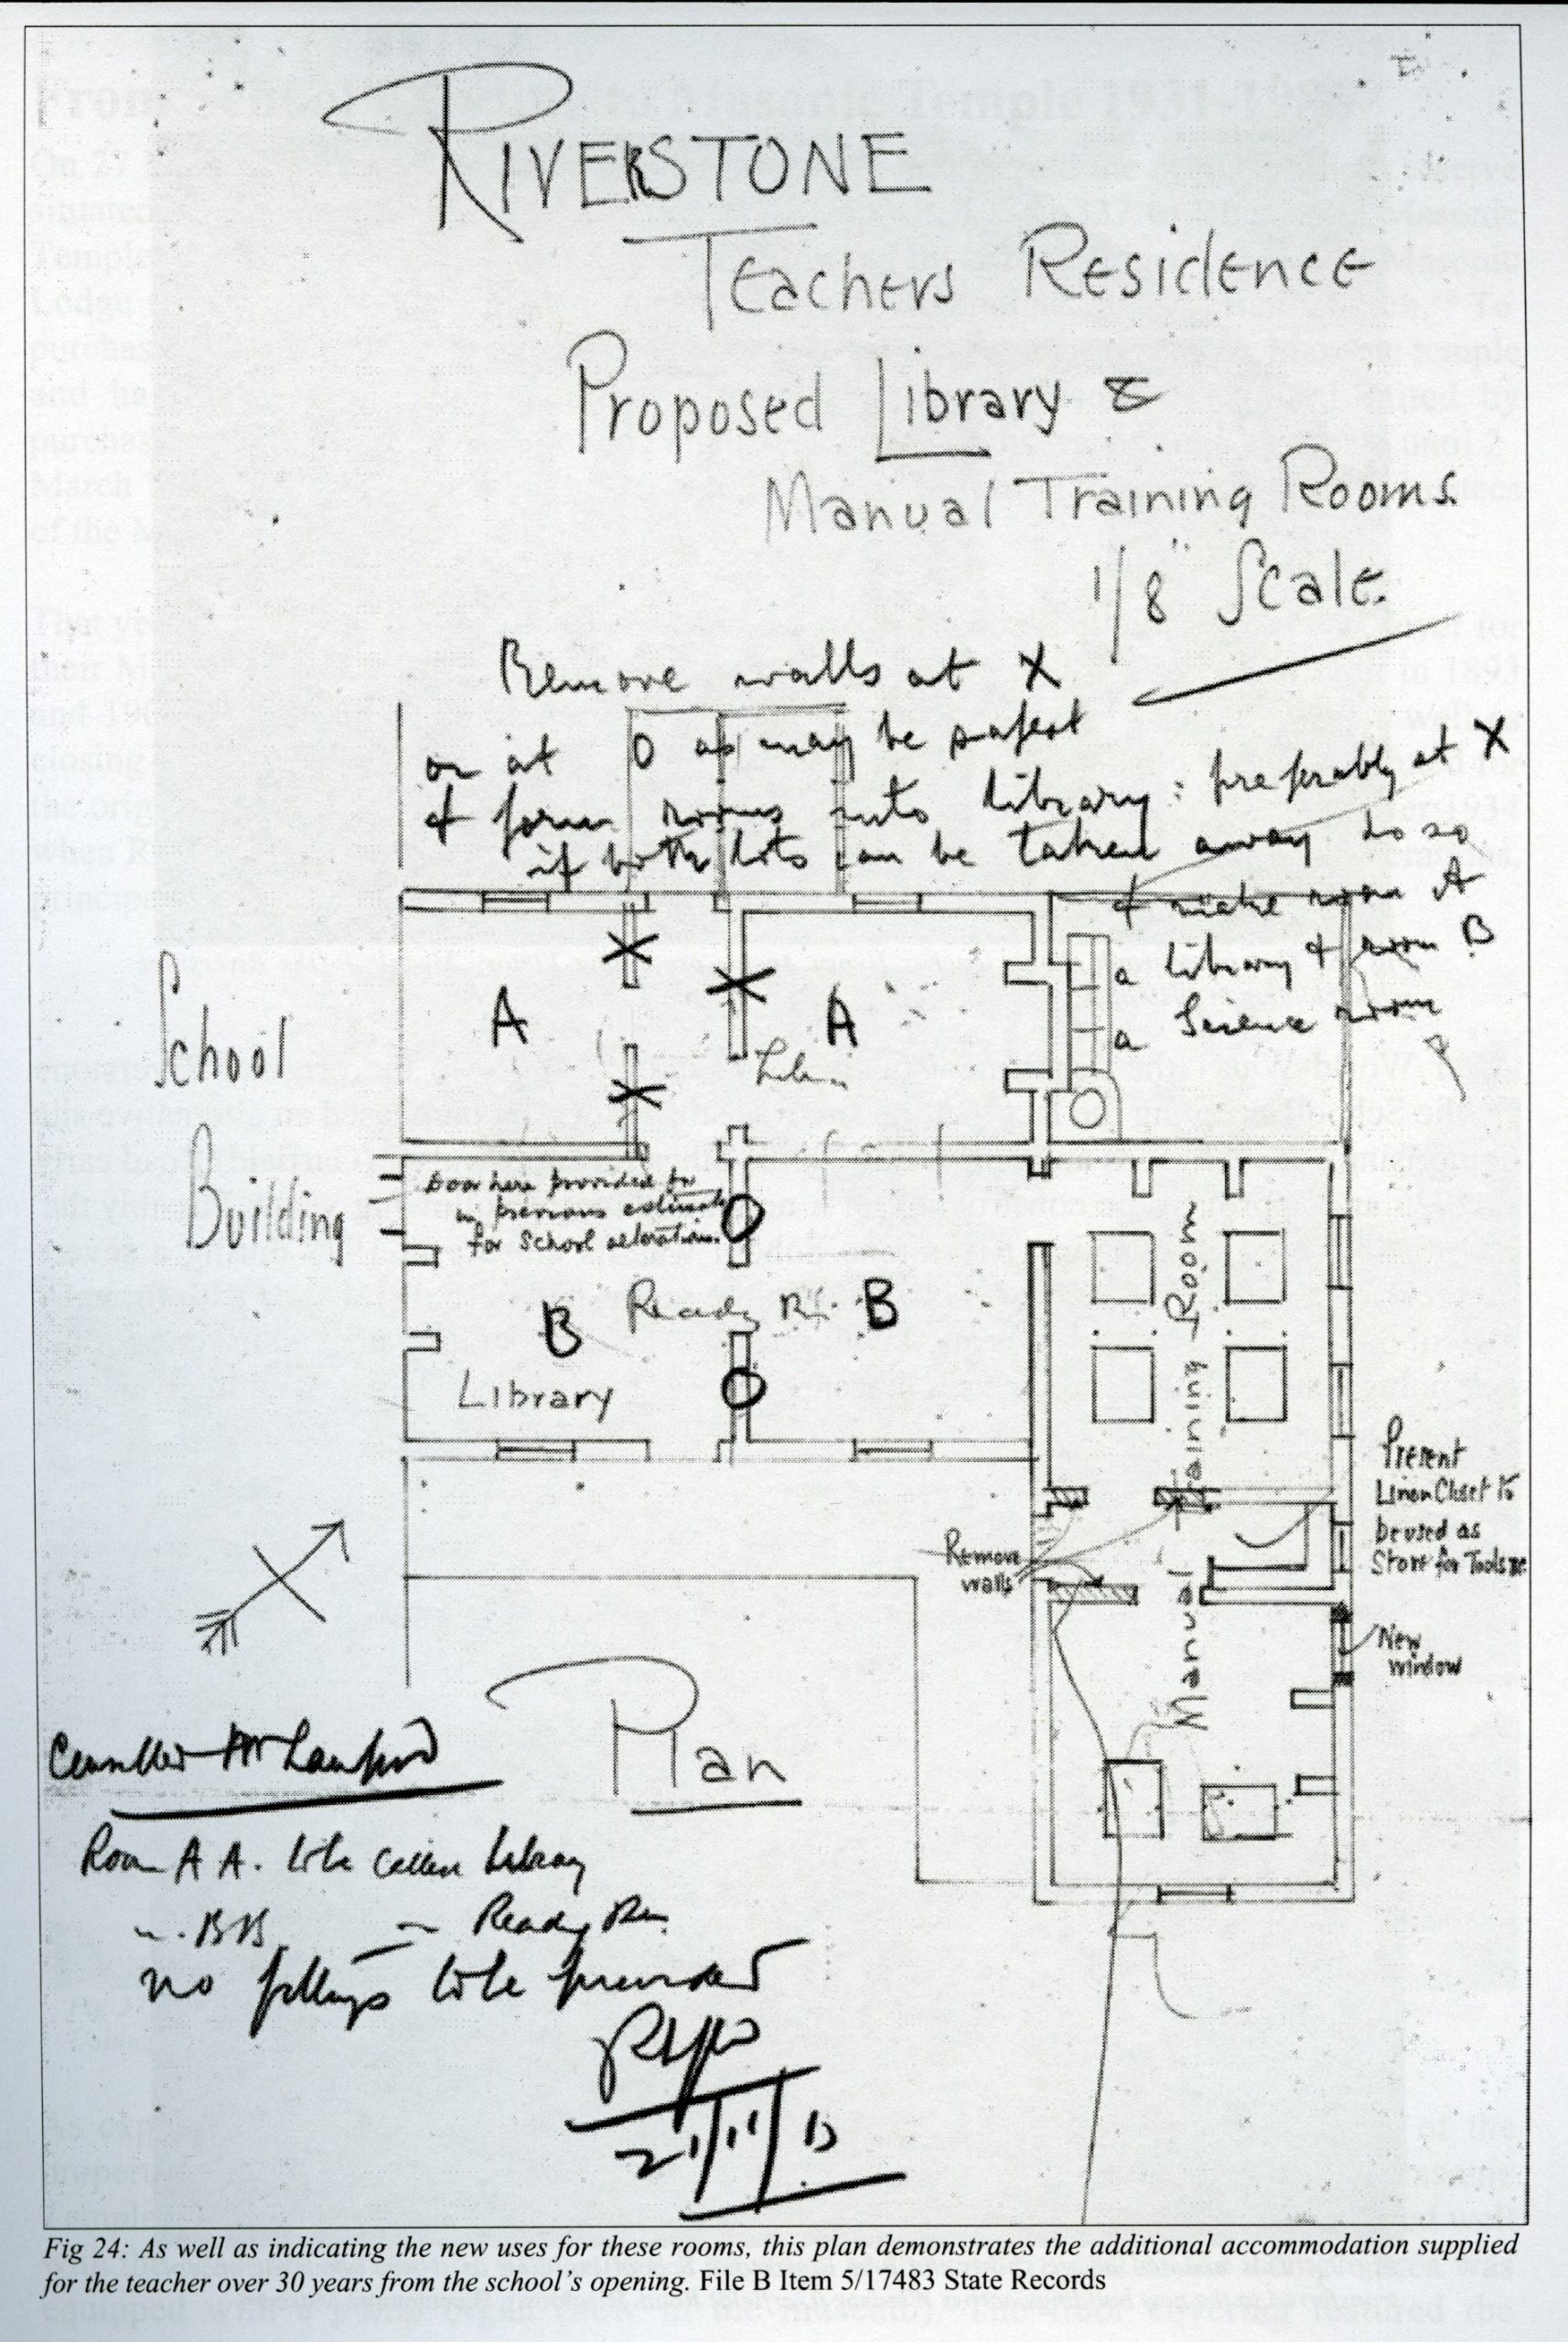 RIVERSTONE
Teachers Residence
Proposed Library &
Manual Training Rooms.
1/8" Scale.
Remove walls at X
or at O as may be safest
& form rooms into Library: preferably at X
if both lots can be taken away to so
& make room A
a Library & room B
a Science room
School
Building
A
A
Door here provided for
in previous estimate
for School alterations.
B
Ready Rm.
B
Library
Manual Training Room
Present
Linen Closet to
be used as
Store for Tools &c
Remove
walls
New
window
Plan
Room A A. to be Library
" BB " Ready Rm.
no fittings to be provided
21/11/13
Fig 24: As well as indicating the new uses for these rooms, this plan demonstrates the additional accommodation supplied
for the teacher over 30 years from the school's opening. File B Item 5/17483 State Records